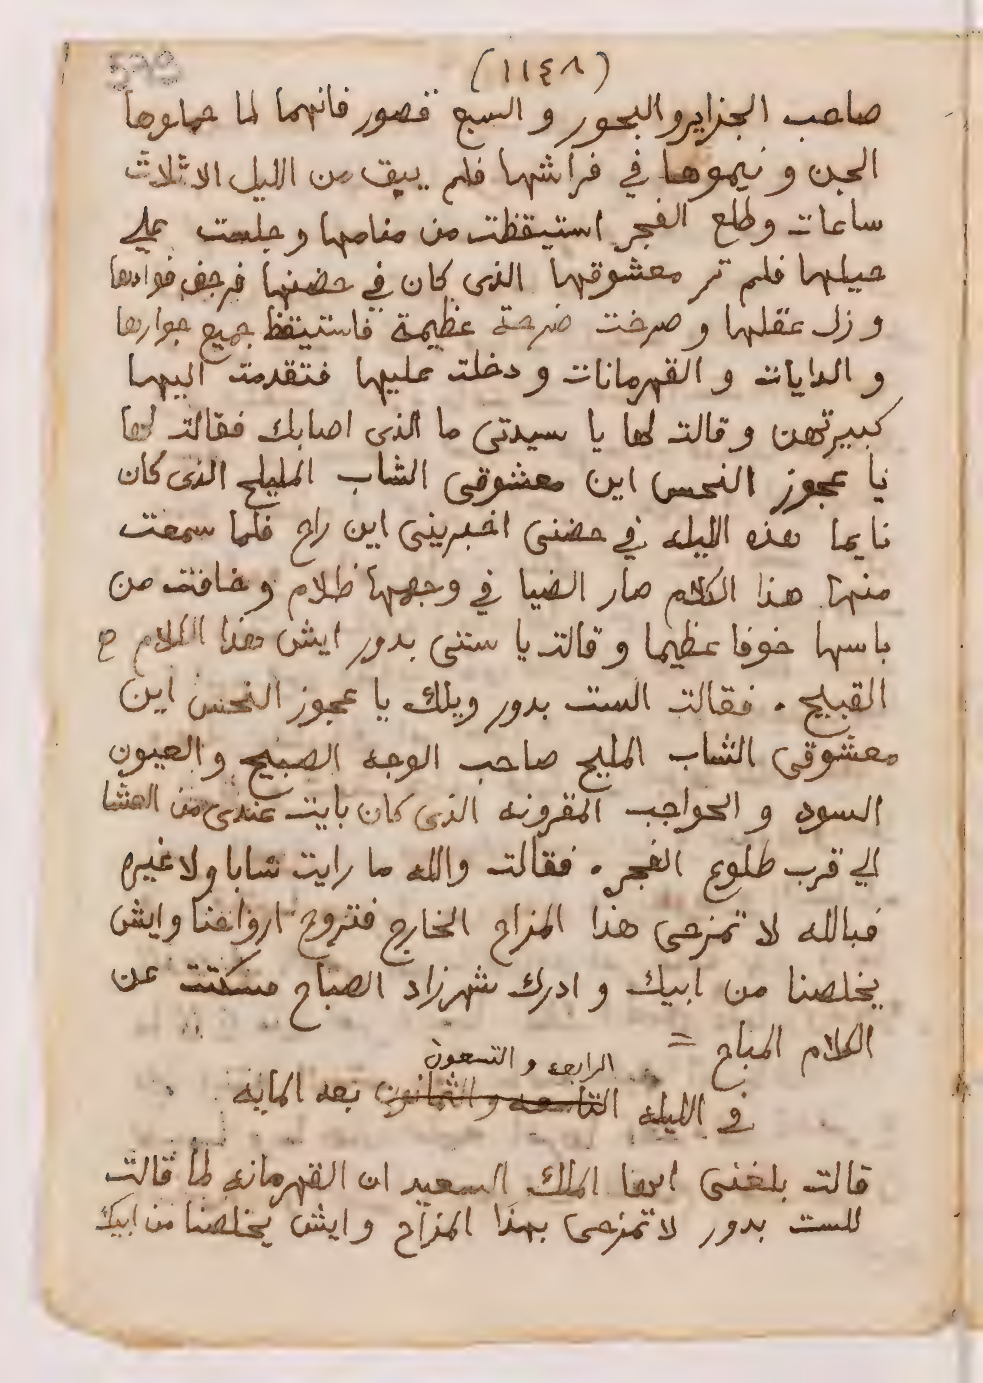 579
(١١٤٨)
صاحب الجزاير والبحور و السبع قصور فانهما لما حملوها
الجن و نيموها في فراشها فلم يبق من الليل الا ثلاث
ساعات وطلع الفجر استيقظت من منامها وجلست على
حيلها فلم تر معشوقها الذى كان في حضنها فرجف فوادها
و زل عقلها و صرخت صرخة عظيمة فاستيقظ جميع جوارها
و الدايات و القهرمانات و دخلت عليها فتقدمت اليها
كبيرتهن و قالت لها يا سيدتى ما الذى اصابك فقالت لها
يا عجوز النحس اين معشوقى الشاب المليلح الذى كان
نايما هذه الليله في حضنى اخبرينى اين راح فلما سمعت
منها هذا الكلام صار الضيا في وجهها ظلام و خافت من
باسها خوفا عظيما و قالت يا ستنى بدور ايش هذا الكلام
القبيح . فقالت الست بدور ويلك يا عجوز النحس اين
معشوقى الشاب المليح صاحب الوجه الصبيح و العيون
السود و الحواجب المقرونه الذى كان بايت عندى من العشا
الي قرب طلوع الفجر . فقالت والله ما رايت شابا ولا غيره
فبالله لا تمزحى هذا المزاح الخارج فتروح ارواحنا وايش
يخلصنا من ابيك و ادرك شهرزاد الصباح فسكتت عن
الكلام المباح =
الرابعه و التسعون
في الليله التاسعه و الثمانون بعد المايه
قالت بلغنى ايها الملك السعيد ان القهرمانه لما قالت
للست بدور لا تمزحى بهذا المزاح و ايش يخلصنا من ابيك